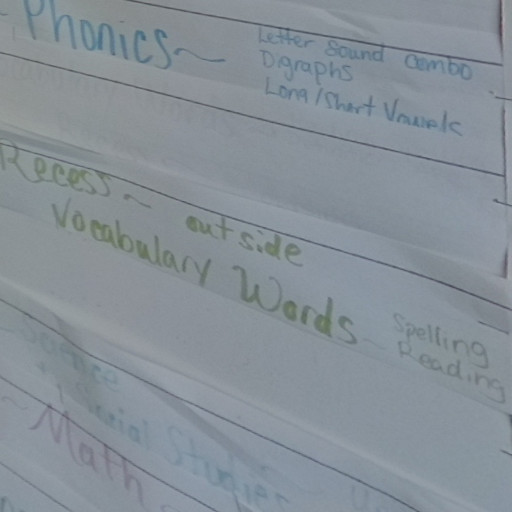 Phonics~ Letter Sound Combo
Digraphs
Long/Short Vowels
Recess~ outside
Vocabulary Words~ Spelling
Reading
Science
Social Studies
~Math